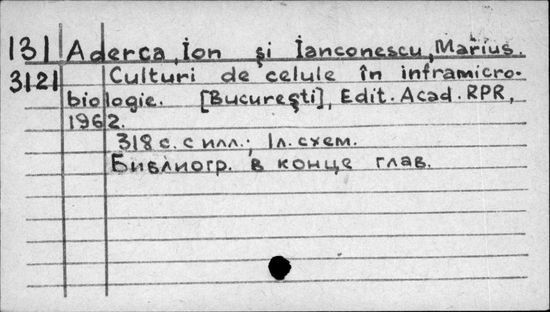 131 Aderca, Ion şi Ianconescu, Marius.
3121 Culturi de celule în inframicro-
biologie. [Bucureşti], Edit. Acad. RPR,
1962.
318 с. с илл.; 1л. схем.
Библиогр. в конце глав.